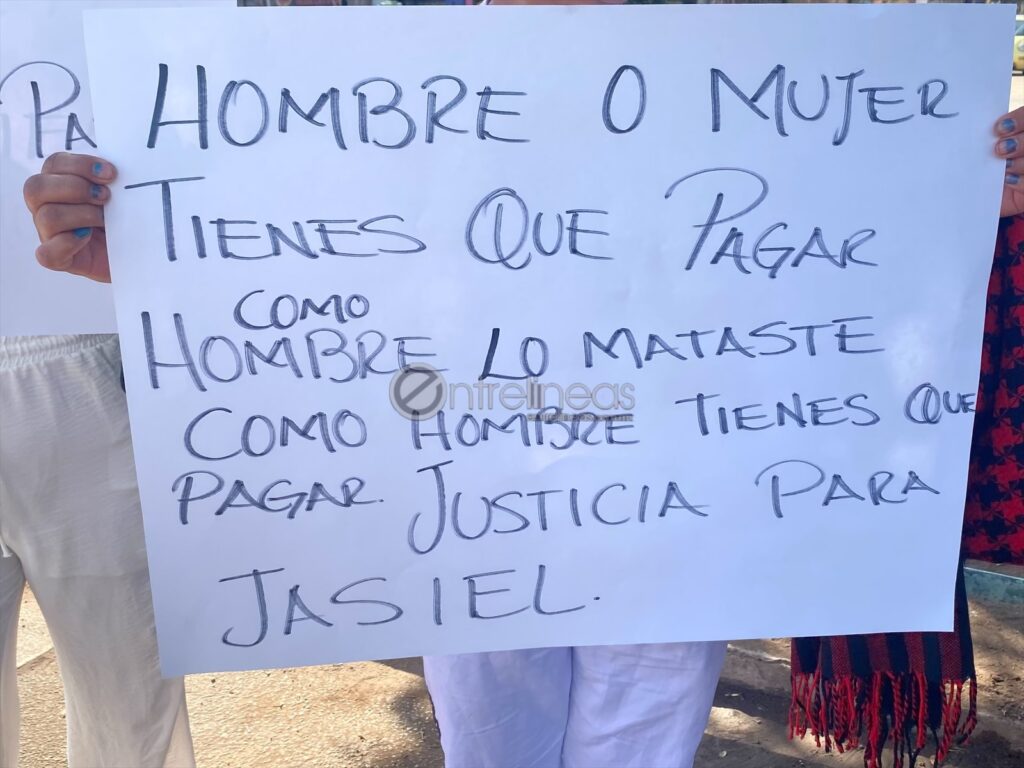 HOMBRE O MUJER
TIENES QUE PAGAR
COMO
HOMBRE LO MATASTE
COMO HOMBRE TIENES QUE
PAGAR. JUSTICIA PARA
JASIEL.
PA
entrelineas